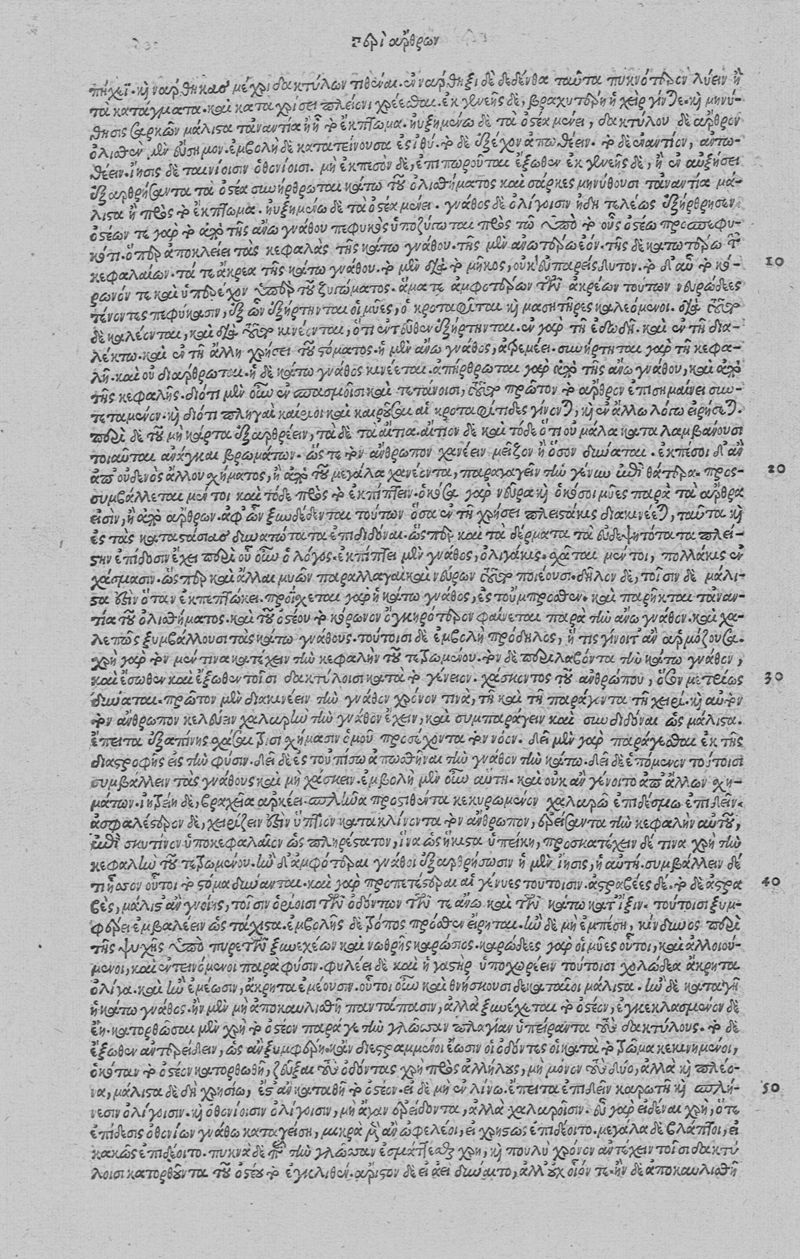 περὶ ἄρθρων
πήχει. καὶ νάρθηκας μέχρι δακτύλων τιθέναι. ἐν νάρθηξι δὲ δεδένθα ταῦτα πυκνότερον λύειν ἢ
τὰ κατάγματα. καὶ καταχύσει πλείονι χρέεσθαι. ἐκ γενεῆς δὲ, βραχυτέρη ἡ χεὶρ γίνεται. καὶ μινύ-
θησις σαρκῶν μάλιστα τἀναντία ἢ ᾗ τὸ ἔκπτωμα. ηὐξημένῳ δὲ τὰ ὀστέα μένει, δακτύλου δὲ ἄρθρον
ὀλισθὸν μὲν εὔσημον. ἐμβολὴ δὲ κατατείναντα ἐς ἰθὺ. τὸ δὲ ἐξέχον ἀπωθέειν. τὸ δὲ ἐναντίον, ἀντω-
θέειν. ἴησις δὲ ταινίοισιν ὀθονίοισι. μὴ ἐκπεσὸν δὲ, ἐπιπωροῦται ἔξωθεν ἐκ γενεῆς δὲ, ἢ ἐν αὐξήσει
ἐξαρθρήσαντα τὰ ὀστέα συνήρθρωται κάτω τοῦ ὀλισθήματος καὶ σάρκες μινύθουσι τἀναντία μά-
λιστα ἢ πρὸς τὸ ἔκπτωμα. ηὐξημένῳ δὲ τὰ ὀστέα μένει. γνάθος δὲ ὀλίγοισιν ἤδη τελέως ἐξήρθρησεν
ὀστέων τε γὰρ τὸ ἀπὸ τῆς ἄνω γνάθου πεφυκὸς ὑπεζύγωται πρὸς τῷ ὑπὸ τὸ οὖς ὀστέῳ προσπεφυ-
κότι. ὅπερ ἀποκλείει τὰς κεφαλὰς τῆς κάτω γνάθου. τῆς μὲν ἀνωτέρω ἐόν. τῆς δὲ κατωτέρω τῶν 10
κεφαλαίων. τά τε ἄκρεα τῆς κάτω γνάθου. τὸ μὲν διὰ τὸ μῆκος, οὐκ εὐπαρείσδυτον. τὸ δ' αὖ τὸ κό-
ρωνόν τε καὶ ὑπερέχον ὑπὲρ τοῦ ζυγώματος. ἅμα τε ἀμφοτέρων τῶν ἀκρέων τούτων νευρώδεες
τένοντες πεφύκασιν, ἐξ ὧν ἐξήρτηνται οἱ μύες, οἱ κροταφῖται καὶ μασητῆρες καλεόμενοι. διὰ τοῦτο
δὲ καλέονται, καὶ διὰ τοῦτο κινέονται, ὅτι ἐντεῦθεν ἐξήρτηνται. ἐν γὰρ τῇ ἐδωδῇ. καὶ ἐν τῇ δια-
λέκτῳ. καὶ ἐν τῇ ἄλλῃ χρήσει τοῦ στόματος. ἡ μὲν ἄνω γνάθος, ἀτρεμέει. συνήρτηται γὰρ τῇ κεφα-
λῇ. καὶ οὐ διήρθρωται. ἡ δὲ κάτω γνάθος κινέεται. ἀπήρθρωται γὰρ ἀπὸ τῆς ἄνω γνάθου, καὶ ἀπὸ
τῆς κεφαλῆς. διότι μὲν οὖν ἐν σπασμοῖσι καὶ τετάνοισι, τοῦτο πρῶτον τὸ ἄρθρον ἐπισημαίνει συν-
τεταμένον. καὶ διότι πληγαὶ καίριοι καὶ καροῦσαι αἱ κροταφίτιδες γίνονται, καὶ ἐν ἄλλῳ λόγῳ εἰρήσεται.
περὶ δὲ τοῦ μὴ κάρτα ἐξαρθρέειν, τάδε τὰ αἴτια. αἴτιον δὲ καὶ τόδε ὅτι οὐ μάλα καταλαμβάνουσι
τοιαῦται ἀνάγκαι βρωμάτων. ὥστε τὸν ἄνθρωπον χανέειν μεῖζον ἢ ὅσον δύναται. ἐκπέσοι δ' ἂν
ἀπ' οὐδενὸς ἄλλου σχήματος, ἢ ἀπὸ τοῦ μεγάλα χανέοντα, παραγαγεῖν τὴν γένυν ἐπὶ θάτερα. προς- 20
συμβάλλεται μέν τοι καὶ τόδε πρὸς τὸ ἐκπίπτειν. ὁκόσα γὰρ νεῦρα καὶ ὁκόσοι μύες παρὰ τὰ ἄρθρα
εἰσὶν, ἢ ἀπὸ ἄρθρων. ἀφ' ὧν ξυνδέδενται τούτων ὅσα ἐν τῇ χρήσει πλειστάκις διακινέεται, ταῦτα καὶ
ἐς τὰς κατατάσιας δυνατώτατα ἐπιδιδόναι. ὥσπερ καὶ τὰ δέρματα τὰ εὐδεψητότατα πλεί-
στην ἐπίδοσιν ἔχει περὶ οὗ οὖν ὁ λόγος. ἐκπίπτει μὲν γνάθος, ὀλιγάκις. σχᾶται μέν τοι, πολλάκις ἐν
χάσμασιν. ὥσπερ καὶ ἄλλαι μυῶν παραλλαγαὶ καὶ νεύρων τοῦτο ποιέουσι. δῆλον δὲ, τοῖσιν δὲ μάλι-
στα ἐστὶν ὅταν ἐκπεπτώκει. προΐχεται γὰρ ἡ κάτω γνάθος, ἐς τοὔμπροσθεν. καὶ παρῆκται τἀναν-
τία τοῦ ὀλισθήματος. καὶ τοῦ ὀστέου τὸ κόρωνον ὀγκηρότερον φαίνεται παρὰ τὴν ἄνω γνάθον. καὶ χα-
λεπῶς ξυμβάλλουσι τὰς κάτω γνάθους. τούτοισι δὲ ἐμβολὴ πρόδηλος, ἥ τις γίνοιτ' ἂν ἁρμόζουσα.
χρὴ γὰρ τὸν μέν τινα κατέχειν τὴν κεφαλὴν τοῦ τετρωμένου. τὸν δὲ περιλαβόντα τὴν κάτω γνάθον,
καὶ ἔσωθεν καὶ ἔξωθεν τοῖσι δακτύλοισι κατὰ τὸ γένειον. χάσκοντος τοῦ ἀνθρώπου, ὅσον μετρίως 30
δύναται. πρῶτον μὲν διακινέειν τὴν γνάθον χρόνον τινὰ, τῇ καὶ τῇ παράγοντα τῇ χειρί. καὶ αὐτὸν
τὸν ἄνθρωπον κελεύειν χαλαρὴν τὴν γνάθον ἔχειν, καὶ συμπαράγειν καὶ συνδιδόναι ὡς μάλιστα.
ἔπειτα ἐξαπίνης σχάσαι τρισὶ σχήμασιν ὁμοῦ προσέχοντα τὸν νόον. δεῖ μὲν γὰρ παράγεσθαι ἐκ τῆς
διαστροφῆς εἰς τὴν φύσιν. δεῖ δὲ ἐς τοὐπίσω ἀπωσθῆναι τὴν γνάθον τὴν κάτω. δεῖ δὲ ἑπόμενον τούτοισι
συμβάλλειν τὰς γνάθους καὶ μὴ χάσκειν. ἐμβολὴ μὲν οὖν αὕτη. καὶ οὐκ ἂν γένοιτο ἀπ' ἄλλων σχη-
μάτων. ἰητρείη δὲ, βραχεία ἀρκέει. σπλῆνα προστιθέντα κεκηρωμένον χαλαρῷ ἐπιδέσμῳ ἐπιδεῖν.
ἀσφαλέστερον δὲ, χειρίζειν ἐστὶν ὕπτιον κατακλίναντα τὸν ἄνθρωπον, ἐρείσαντα τὴν κεφαλὴν αὐτοῦ,
ἐπὶ σκυτίνου ὑποκεφαλαίου ὡς πληρεστάτου, ἵνα ὡς ἥκιστα ὑπείκῃ, προσκατέχειν δέ τινα χρὴ τὴν
κεφαλὴν τοῦ τετρωμένου. ἢν δ' ἀμφότεραι γνάθοι ἐξαρθρήσωσιν ἡ μὲν ἴησις, ἡ αὐτή. συμβάλλειν δέ
τι ἧσσον οὗτοι τὸ στόμα δύνανται. καὶ γὰρ προπετέστεραι αἱ γένυες τούτοισιν. ἀστραβέες δέ. τὸ δὲ ἀστρα 40
βὲς, μάλιστ' ἂν γνοίης, τοῖσιν ὁρίοισι τῶν ὀδόντων τῶν τε ἄνω καὶ τῶν κάτω κατ' ἴξιν. τούτοισι ξυμ-
φέρει ἐμβαλέειν ὡς τάχιστα. ἐμβολῆς δὲ τρόπος πρόσθεν εἴρηται. ἢν δὲ μὴ ἐμπέσῃ, κίνδυνος περὶ
τῆς ψυχῆς ὑπὸ πυρετῶν ξυνεχέων καὶ νωθρῆς καρώσιος. καρώδεες γὰρ οἱ μύες οὗτοι, καὶ ἀλλοιού-
μενοι, καὶ ἐντεινόμενοι παρὰ φύσιν. φιλέει δὲ καὶ ἡ γαστὴρ ὑποχωρέειν τούτοισι χολώδεα ἄκρητα
ὀλίγα. καὶ ἢν ἐμέωσιν, ἄκρητα ἐμέουσιν. οὗτοι οὖν καὶ θνήσκουσι δεκαταῖοι μάλιστα. ἢν δὲ καταγῇ
ἡ κάτω γνάθος. ἢν μὲν μὴ ἀποκαυλισθῇ παντάπασιν, ἀλλὰ ξυνέχεται τὸ ὀστέον, ἐγκεκλασμένον δὲ
ἔῃ. κατορθῶσαι μὲν χρὴ τὸ ὀστέον παρά γε τὴν γλῶσσαν πλαγίαν ὑπείραντα τοὺς δακτύλους. τὸ δὲ
ἔξωθεν ἀντερείδειν, ὡς ἂν ξυμφέρῃ. κἂν διεστραμμένοι ἔωσιν οἱ ὀδόντες οἱ κατὰ τὸ τρῶμα κεκινημένοι,
ὁκόταν τὸ ὀστέον κατορθωθῇ, ζεῦξαι τοὺς ὀδόντας χρὴ πρὸς ἀλλήλους, μὴ μόνον τοὺς δύο, ἀλλὰ καὶ πλέο-
να, μάλιστα δὲ δὴ χρυσίῳ, ἔστ' ἂν κραταιωθῇ τὸ ὀστέον. εἰ δὲ μὴ ἐν λίνῳ. ἔπειτα ἐπιδεῖν κηρωτῇ καὶ σπλή- 50
νεσιν ὀλίγοισιν. καὶ ὀθονίοισιν ὀλίγοισιν, μὴ ἄγαν ἐρείδοντα, ἀλλὰ χαλαροῖσιν. εὖ γὰρ εἰδέναι χρὴ, ὅτι
ἐπίδεσις ὀθονίων γνάθῳ καταγείσῃ, μικρὰ μὲν ἂν ὠφελέοι, εἰ χρηστῶς ἐπιδέοιτο. μεγάλα δὲ βλάπτοι, εἰ
κακῶς ἐπιδέοιτο. πυκνὰ δὲ παρὰ τὴν γλῶσσαν ἐσματέεσθαι χρὴ, καὶ πουλὺ χρόνον ἀντέχειν τοῖσι δακτύ
λοισι κατορθοῦντα τοῦ ὀστέου τὸ ἐγκλιθέν. ἄριστον δὲ εἰ ἀεὶ δύναιτο, ἀλλ' οὐχ οἷόν τε. ἢν δὲ ἀποκαυλισθῇ